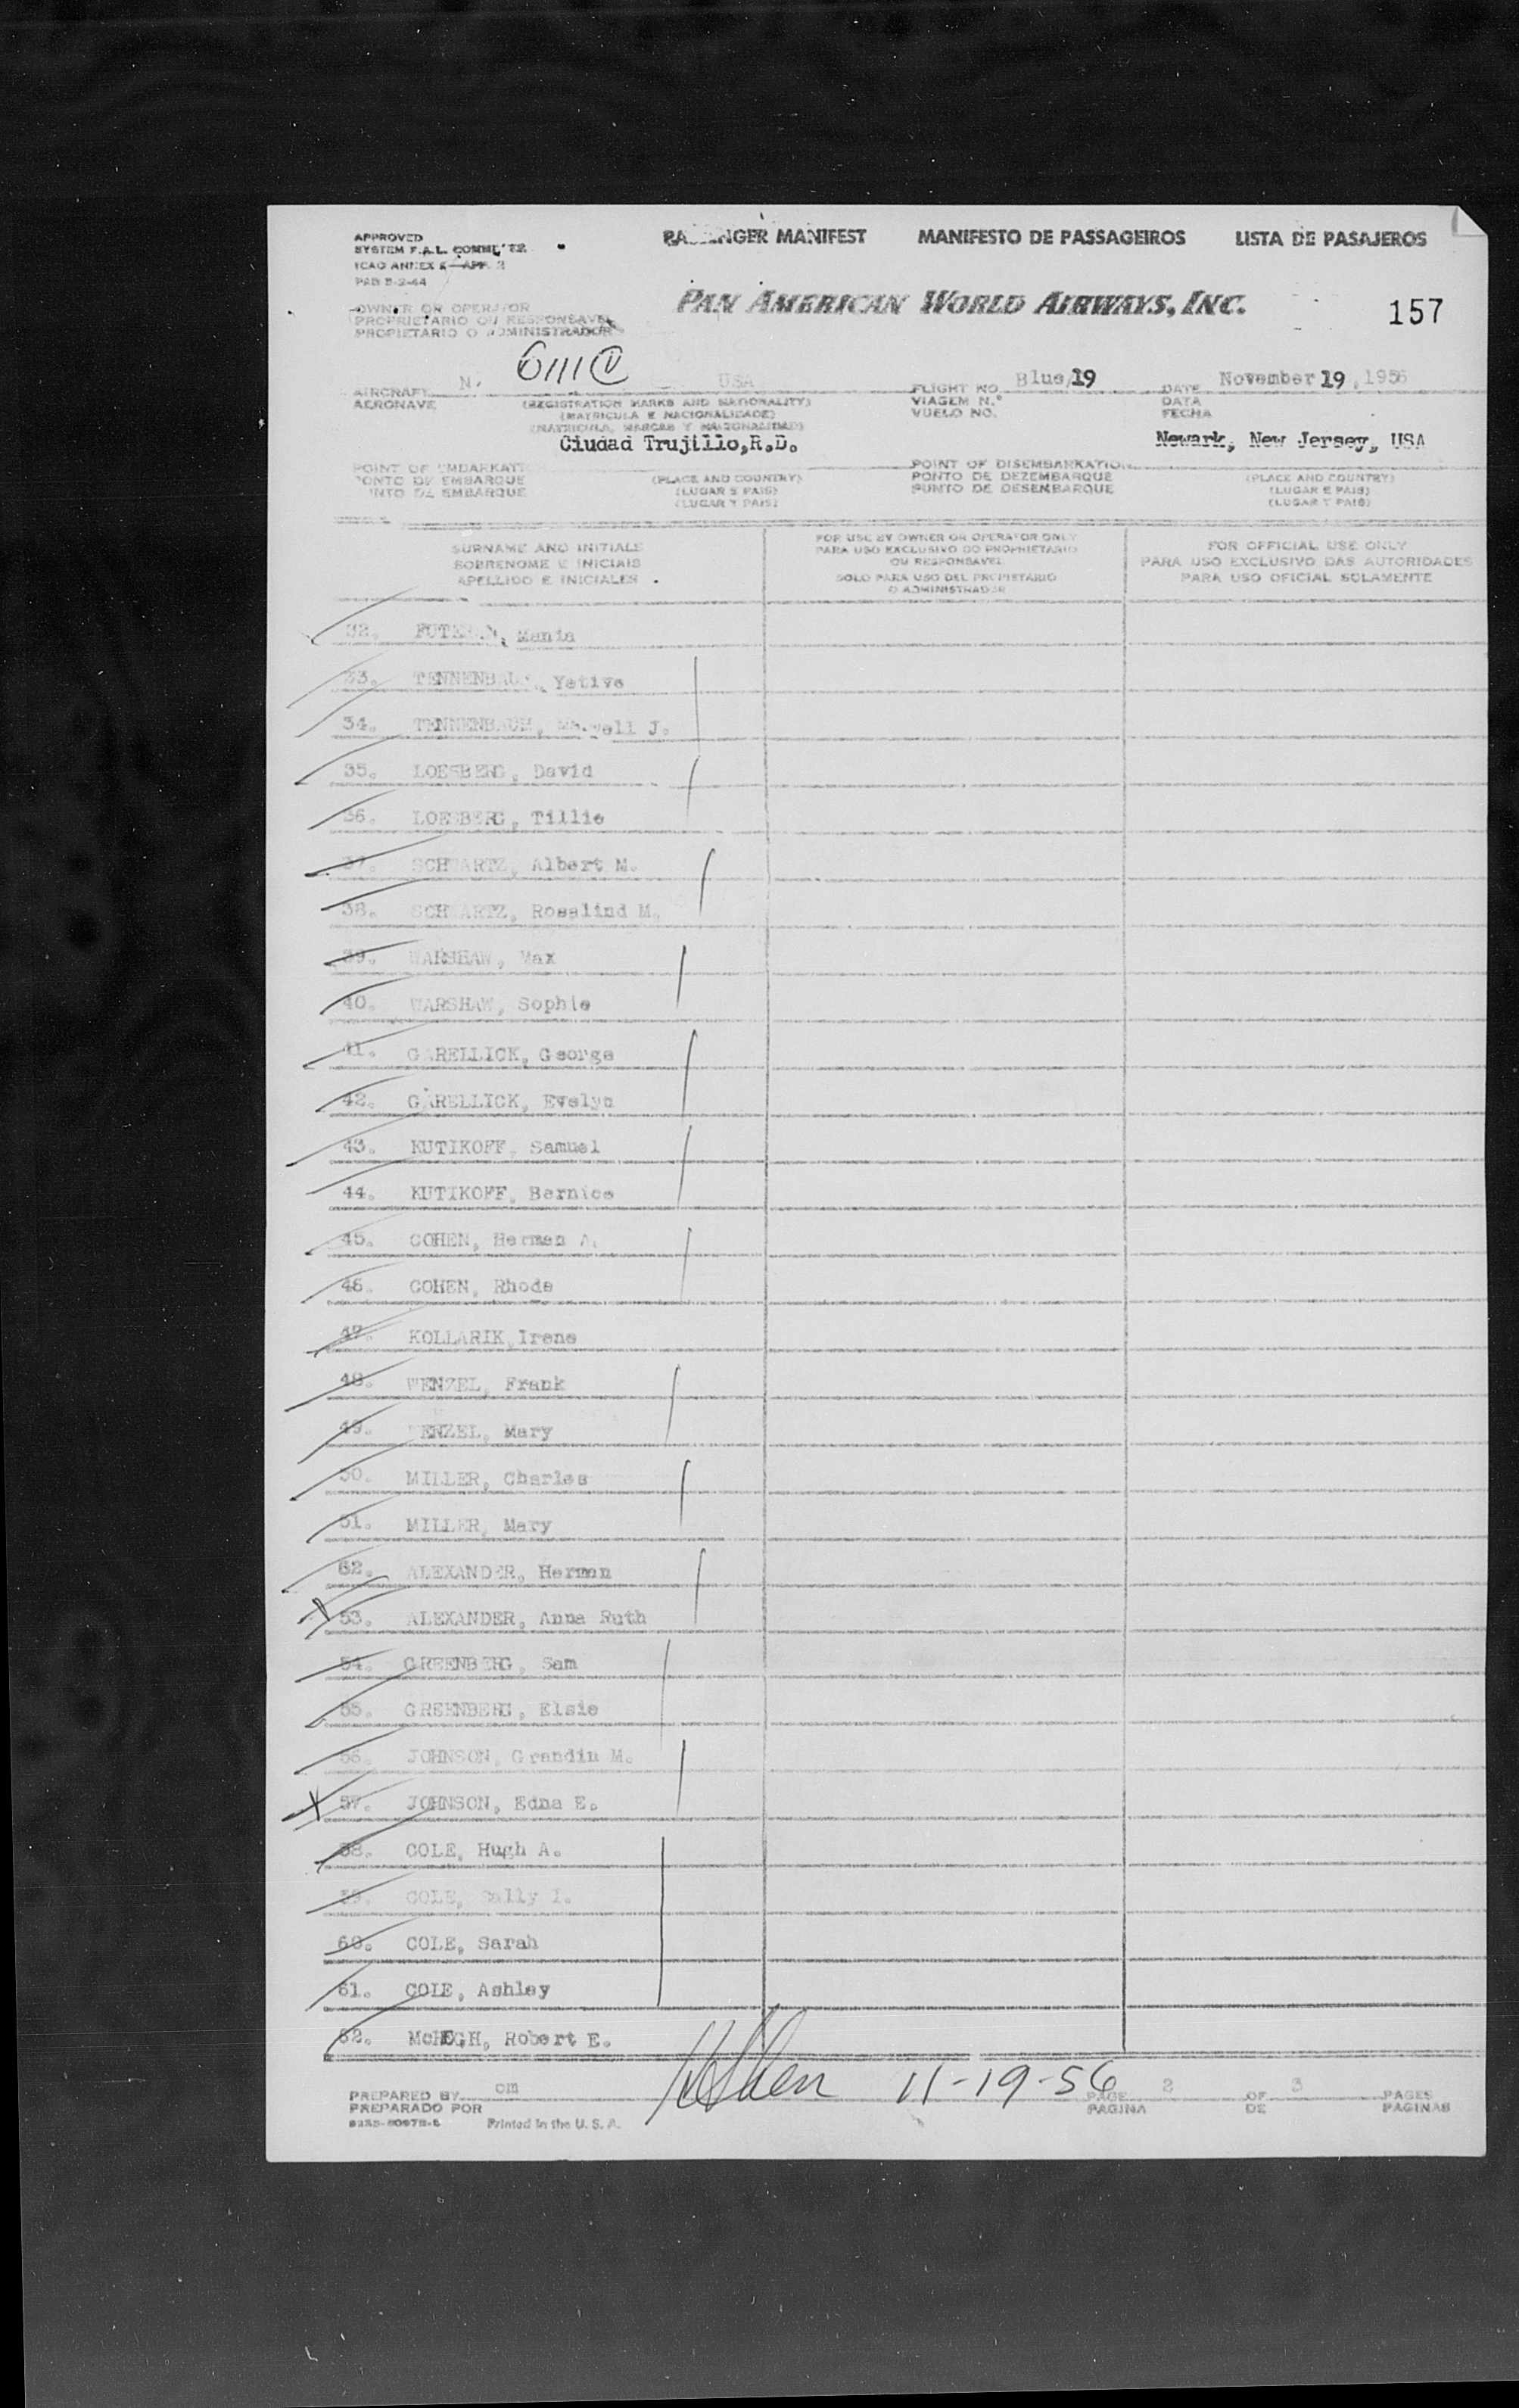 APPROVED
SYSTEM F.A.L.
ICAO ANNEX
PASSENGER MANIFEST MANIFESTO DE PASSAGEIROS LISTA DE PASAJEROS
OWNER OR OPERATOR
PROPRIETARIO OU RESPONSAVEL
PROPIETARIO O ADMINISTRADOR
PAN AMERICAN WORLD AIRWAYS, INC.
157
AIRCRAFT N. USA FLIGHT NO. Blue/19 DATE November 19, 1956
AERONAVE (REGISTRATION MARKS AND NATIONALITY) VIAGEM N.º DATA
(MATRICULA E NACIONALIDADE) VUELO NO. FECHA
(MATRICULA, MARCAS Y NACIONALIDAD)
Ciudad Trujillo,R.D. Newark, New Jersey, USA
POINT OF EMBARKATION POINT OF DISEMBARKATION
PONTO DE EMBARQUE (PLACE AND COUNTRY) PONTO DE DEZEMBARQUE (PLACE AND COUNTRY)
PUNTO DE EMBARQUE (LUGAR E PAIS) PUNTO DE DESEMBARQUE (LUGAR E PAIS)
(LUGAR Y PAIS) (LUGAR Y PAIS)
SURNAME AND INITIALS
SOBRENOME E INICIAIS
APELLIDO E INICIALES
FOR USE BY OWNER OR OPERATOR ONLY
PARA USO EXCLUSIVO DO PROPRIETARIO
OU RESPONSAVEL
SOLO PARA USO DEL PROPIETARIO
O ADMINISTRADOR
FOR OFFICIAL USE ONLY
PARA USO EXCLUSIVO DAS AUTORIDADES
PARA USO OFICIAL SOLAMENTE
32. Mania
33. TENNENBAUM, Yetive
34. TENNENBAUM, J.
35. LOESBERG, David
36. LOESBERG, Tillie
37. SCHWARTZ, Albert M.
38. SCHWARTZ, Rosalind M.
39. WARSHAW, Max
40. WARSHAW, Sophie
41. GARELLICK, George
42. GARELLICK, Evelyn
43. KUTIKOFF, Samuel
44. KUTIKOFF, Bernice
45. COHEN, Herman A.
46. COHEN, Rhoda
47. KOLLARIK, Irene
48. WENZEL, Frank
49. WENZEL, Mary
50. MILLER, Charles
51. MILLER, Mary
52. ALEXANDER, Herman
53. ALEXANDER, Anna Ruth
54. GREENBERG, Sam
55. GREENBERG, Elsie
56. JOHNSON, Grandin M.
57. JOHNSON, Edna E.
58. COLE, Hugh A.
59. COLE, Sally I.
60. COLE, Sarah
61. COLE, Ashley
62. Robert E.
11-19-56
PREPARED BY om PAGE 2 OF 3 PAGES
PREPARADO POR PAGINA DE PAGINAS
Printed in the U. S. A.